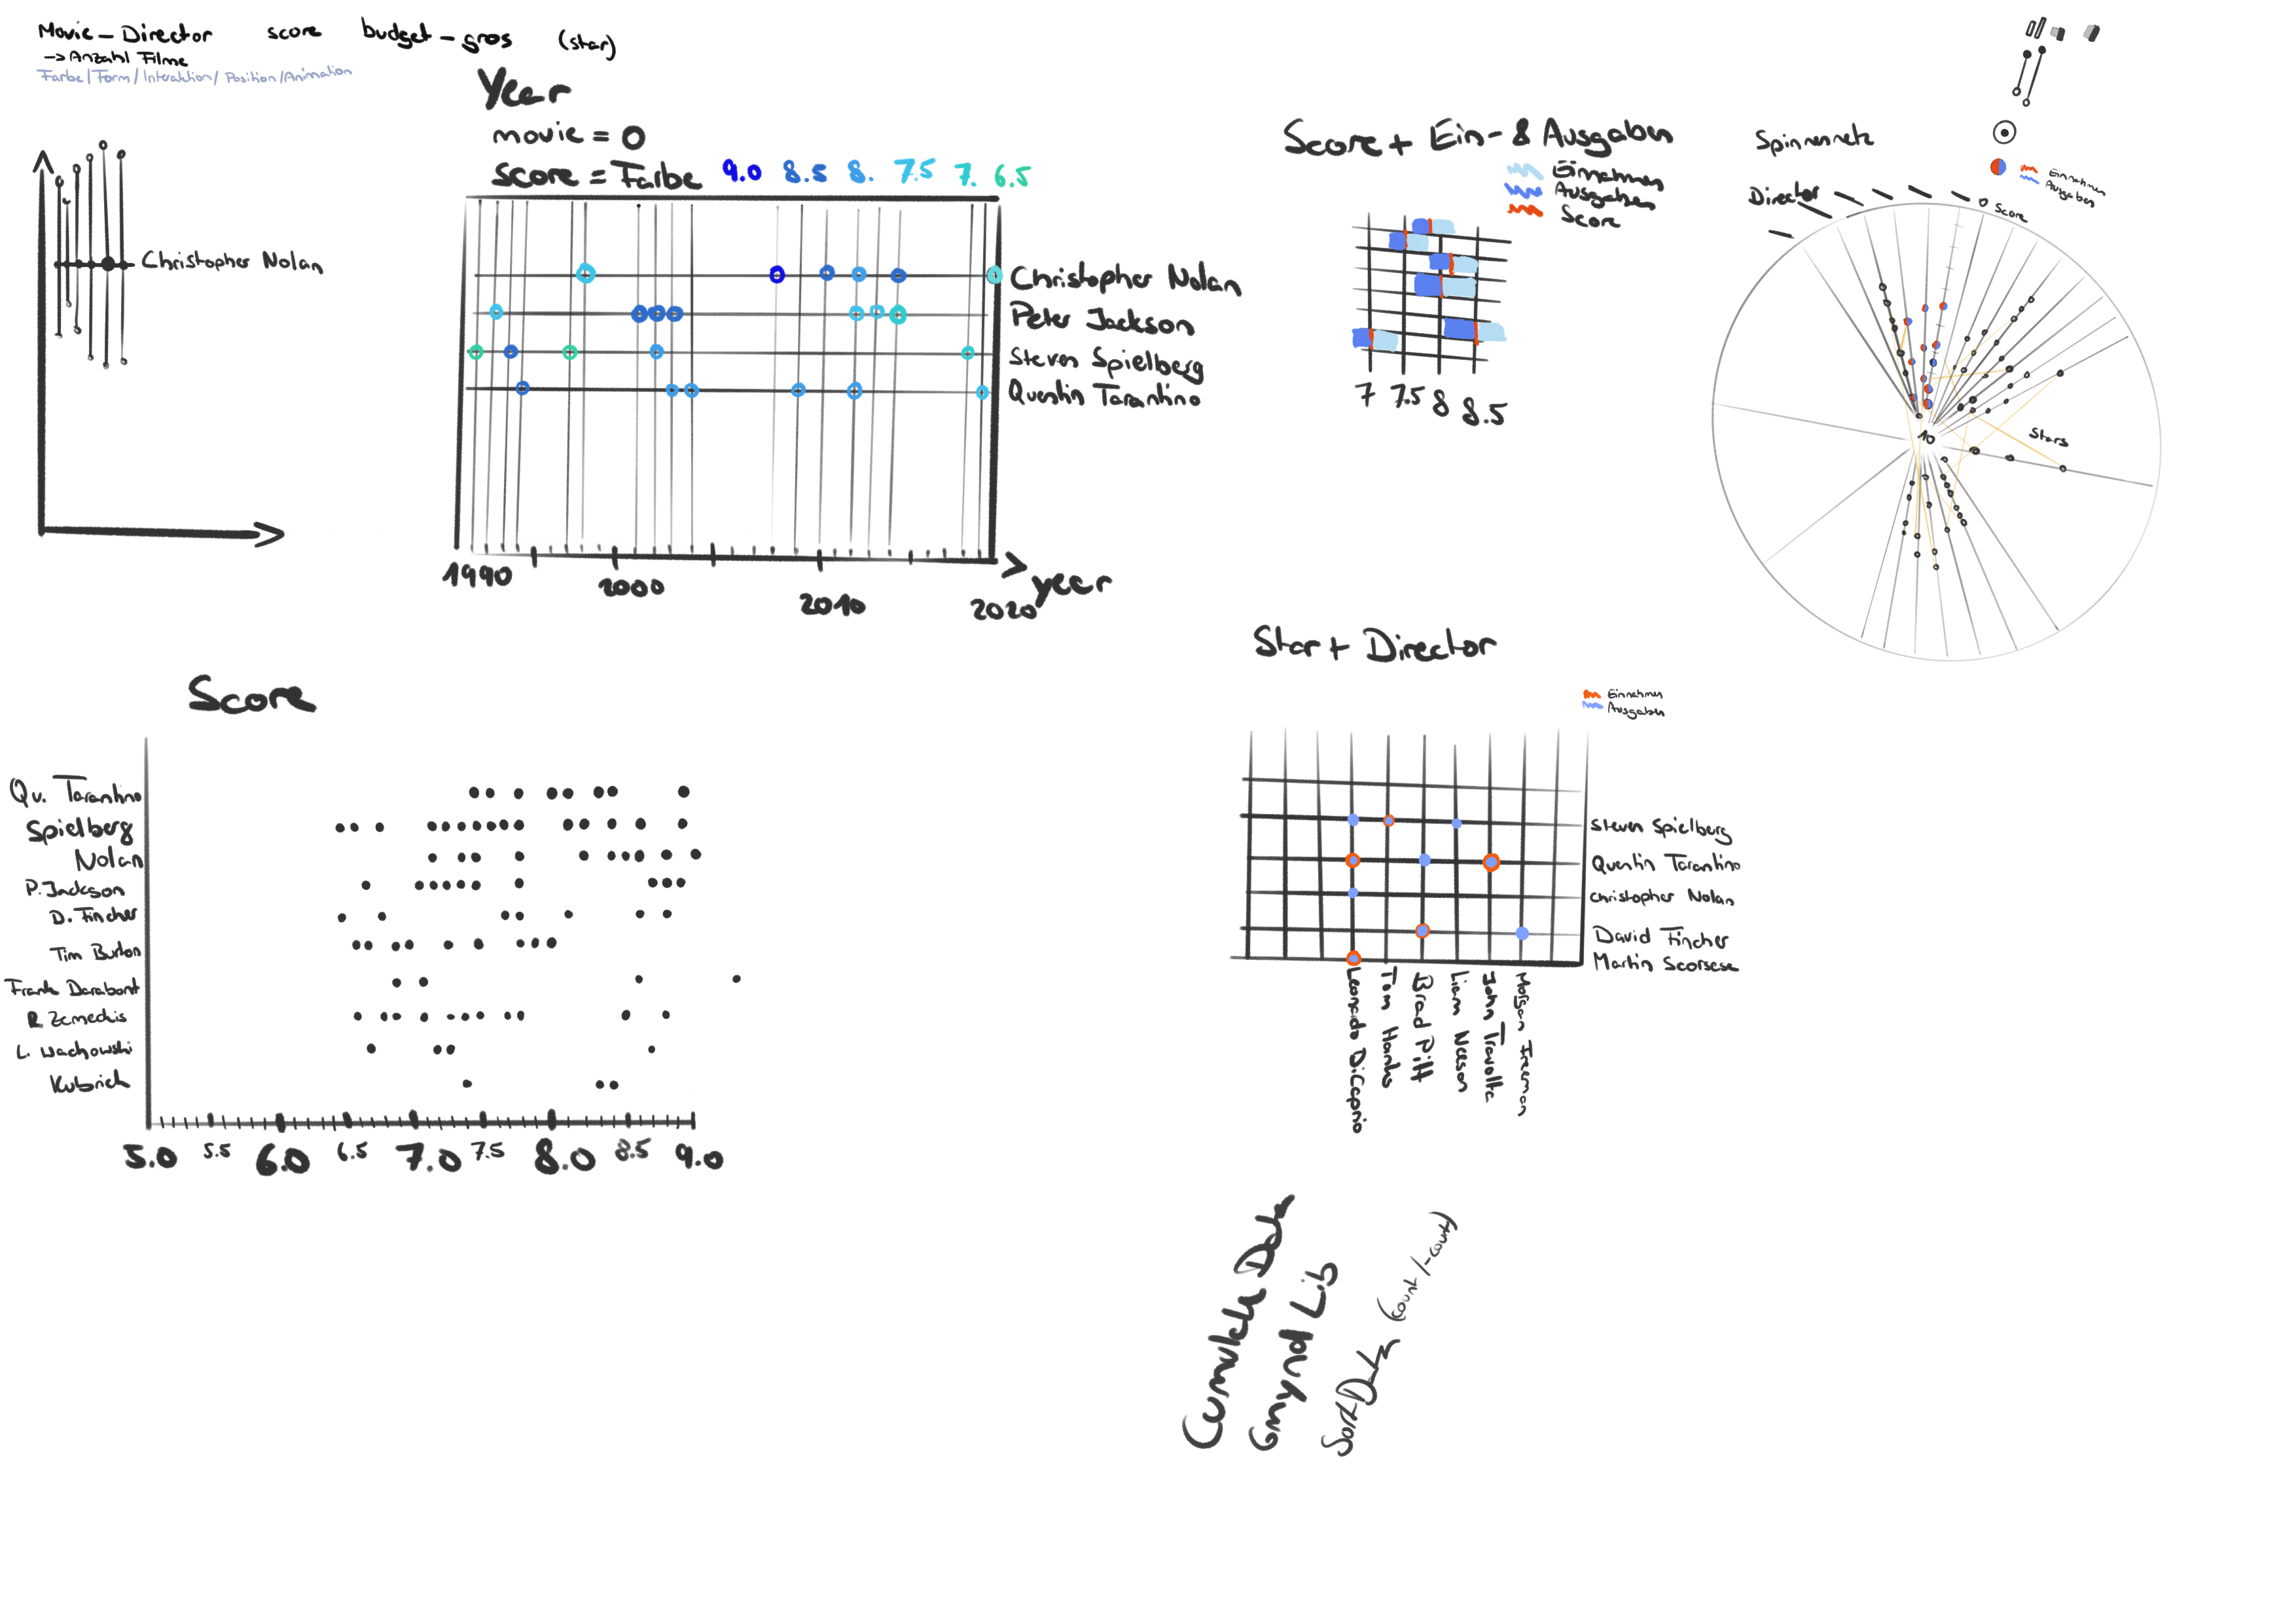 Movie – Director score budget – gros (star)
-> Anzahl Filme
Farbe / Form / Interaktion / Position / Animation
Christopher Nolan
Year
movie = O
score = Farbe 9.0 8.5 8. 7.5 7. 6.5
Christopher Nolan
Peter Jackson
Steven Spielberg
Quentin Tarantino
1990 2000 2010 2020 year
Score + Ein- & Ausgaben
Einnahmen
Ausgaben
Score
7 7.5 8 8.5
Spinnennetz
Einnahmen
Ausgaben
Director
0 Score
10
Stars
Score
Qu. Tarantino
Spielberg
Nolan
P. Jackson
D. Fincher
Tim Burton
Frank Darabont
R. Zemeckis
L. Wachowski
Kubrick
5.0 5.5 6.0 6.5 7.0 7.5 8.0 8.5 9.0
Star + Director
Einnahmen
Ausgaben
Steven Spielberg
Quentin Tarantino
Christopher Nolan
David Fincher
Martin Scorsese
Leonardo DiCaprio
Tom Hanks
Brad Pitt
Liam Neeson
John Travolta
Morgan Freeman
Cumulate Data
Gmynd Lib
Sort Data (count / -count)